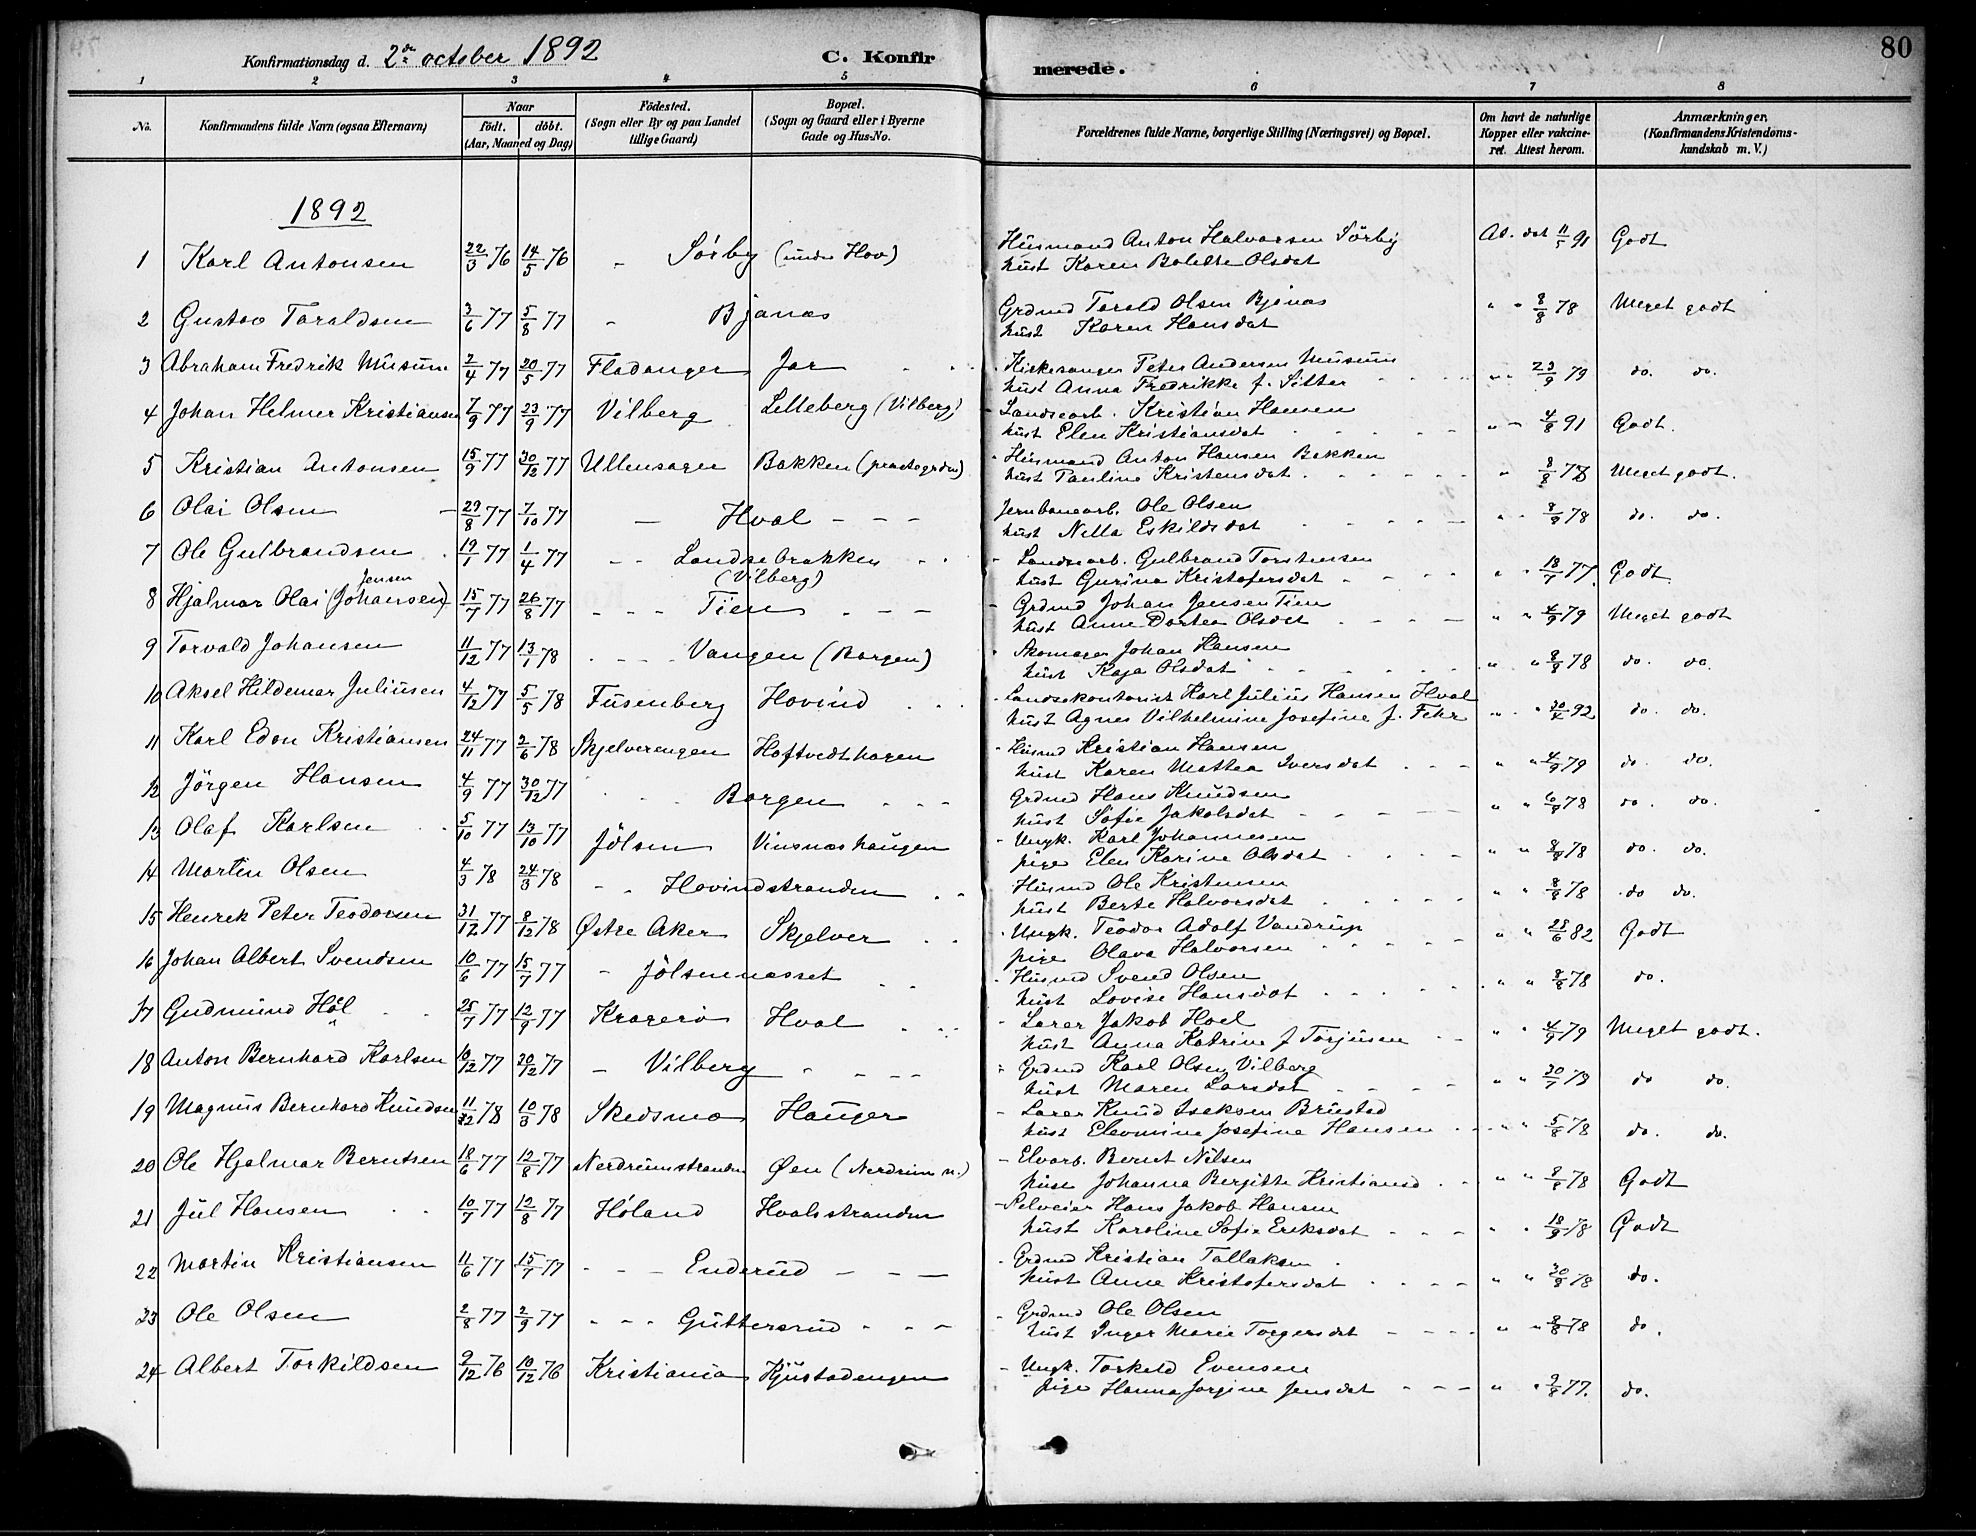 Konfirmationsdag d. 2de october 1892 C. Konfirmerede. 80
1 2 3 4 5 6 7 8
No. Konfirmandens fulde Navn (ogsaa Efternavn) Naar født. døbt. (Aar, Maaned og Dag) Fødested. (Sogn eller By og paa Landet tillige Gaard) Bopæl. (Sogn og Gaard eller i Byerne Gade og Hus-No. Forældrenes fulde Navne, borgerlige Stilling (Næringsvei) og Bopæl. Om havt de naturlige Kopper eller vakcineret. Attest herom. Anmærkninger. (Konfirmandens Kristendomskundskab m. V.)
1892
1 Karl Antonsen 22/3 76 14/5 76 - Sörby (under Hov) Husmand Anton Halvorsen Sörby At. dat 11/5 91 Godt
hust Karen Bolette Olsdat
2 Gustav Taraldsen 3/6 77 5/8 77 - Bjanæs Grdmd Tarald Olsen Bjönæs " " 8/8 78 Meget godt
hust Karen Hansdat
3 Abraham Fredrik Musum 2/4 77 20/5 77 Fladanger Jar Kirkesanger Peter Andersen Musum " " 23/9 79 do. do.
hust Anna Fredrikke f. Sötter
4 Johan Helmer Kristiansen 7/9 77 23/9 77 Vilberg Lilleberg (Vilberg) Landsearb. Kristian Hansen " " 4/8 91 Godt.
hust Elen Kristiansdat
5 Kristian Antonsen 15/9 77 30/12 77 Ullensager Bakken (prestegrden) Husmand Anton Hansen Bakken " 8/8 78 Meget godt.
hust Pauline Kristensdat
6 Olai Olsen 29/8 77 7/10 77 - Hval - - - Jernbanearb. Ole Olsen " " 8/8 78 do. do.
hust Nilla Eskildsdat
7 Ole Gulbrandsen 19/1 77 1/4 77 - - Landsebrakken Landsearb. Gulbrand Torstensen " " 18/7 77 Godt
(Vilberg) hust Gurina Kristofersdat
8 Hjalmar Olai (Johansen) Jensen 15/7 77 26/8 77 - - - Tien - - - Grdmd Johan Jensen Tien " " 4/9 79 Meget godt
hust Anne Dortea Olsdat
9 Torvald Johansen 11/12 77 13/1 78 - - - Vangen (Borgen) Skomager Johan Hansen " " 8/8 78 do. do.
hust Kaja Olsdat
10 Aksel Hildemar Juliusen 4/12 77 5/5 78 Fusenberg Hovind Landsekontorist Karl Julius Hansen Hval " " 30/4 92 do. do.
hust Agnes Vilhelmine Josefine f. Fehr
11 Karl Edon Kristiansen 24/11 77 2/6 78 Skjelverengen Hoftvedthagen Husmd Kristian Hansen " " 4/9 79 do. do.
hust Karen Mattea Iversdat
12 Jörgen Hansen 4/9 77 30/12 77 - - Borgen - - - Grdmd Hans Knudsen " " 78 do. do.
hust Sofie Jakobsdat
13 Olaf Karlsen 5/10 77 13/10 77 Jölsen Vinsnæshaugen Ungk. Karl Johannesen " " 8/8 78 do. do.
pige Elen Karine Olsdat
14 Martin Olsen 4/3 78 24/3 78 - - Hovindstranden Husmd Ole Kristensen " " 8/8 78 do do.
hust Berte Halvorsdat
15 Henrik Peter Teodorsen 31/12 77 8/12 78 Østre Aker Skjelver Ungk. Teodor Adolf Vandrup " " 28/6 82 Godt
pige Olava Halvorsen
16 Johan Albert Svendsen 10/6 77 15/7 77 - Jölsennæsset Husmd Svend Olsen " " 8/8 78 do.
hust Lovise Hansdat
17 Gudmund Höl 25/7 77 12/9 77 Kragerö Hval Lærer Jakob Hoel " " 4/9 79 Meget godt.
hust Anna Katrine f Torjusen
18 Anton Bernhard Karlsen 10/12 77 30/12 77 - Vilberg - - - Grdmd Karl Olsen Vilberg " " do do.
hust Maren Larsdat
19 Magnus Bernhard Knudsen 11/ 78 10/3 78 Skedsmo Hauger Lærer Knud Isaksen Brusted " " 5/8 78 do. do.
hust Eleonine Josefine Hansen
20 Ole Hjalmar Berntsen 18/6 77 12/8 77 Nerdrumstranden Øen (Nerdrum n.) Elvarb. Bernt Nilsen " " 8/8 78 Godt
hust Johanna Bergitte Kristiansd
21 Jul Hansen 10/7 77 12/8 77 Höland Hvalsstranden Selveier Hans Jakob Hansen " " 18/9 78 Godt
hust Karoline Sofie Eriksdat
22 Martin Kristiansen 11/6 77 15/7 77 - - - Enderud - - - Grdmd Kristian Tollaksen " " 78 do.
hust Anne Kristofersdat
23 Ole Olsen 2/8 77 2/9 77 - - - Guttersrud - - - Grdmd Ole Olsen " " 8/8 78 do.
hust Inger Marie Torgersdat
24 Albert Torkildsen 9/12 76 10/12 76 Kristiania Kjustadengen Ungk. Torkild Evensen " " 9/8 77. do.
pige Hanna Jorgine Jensdat